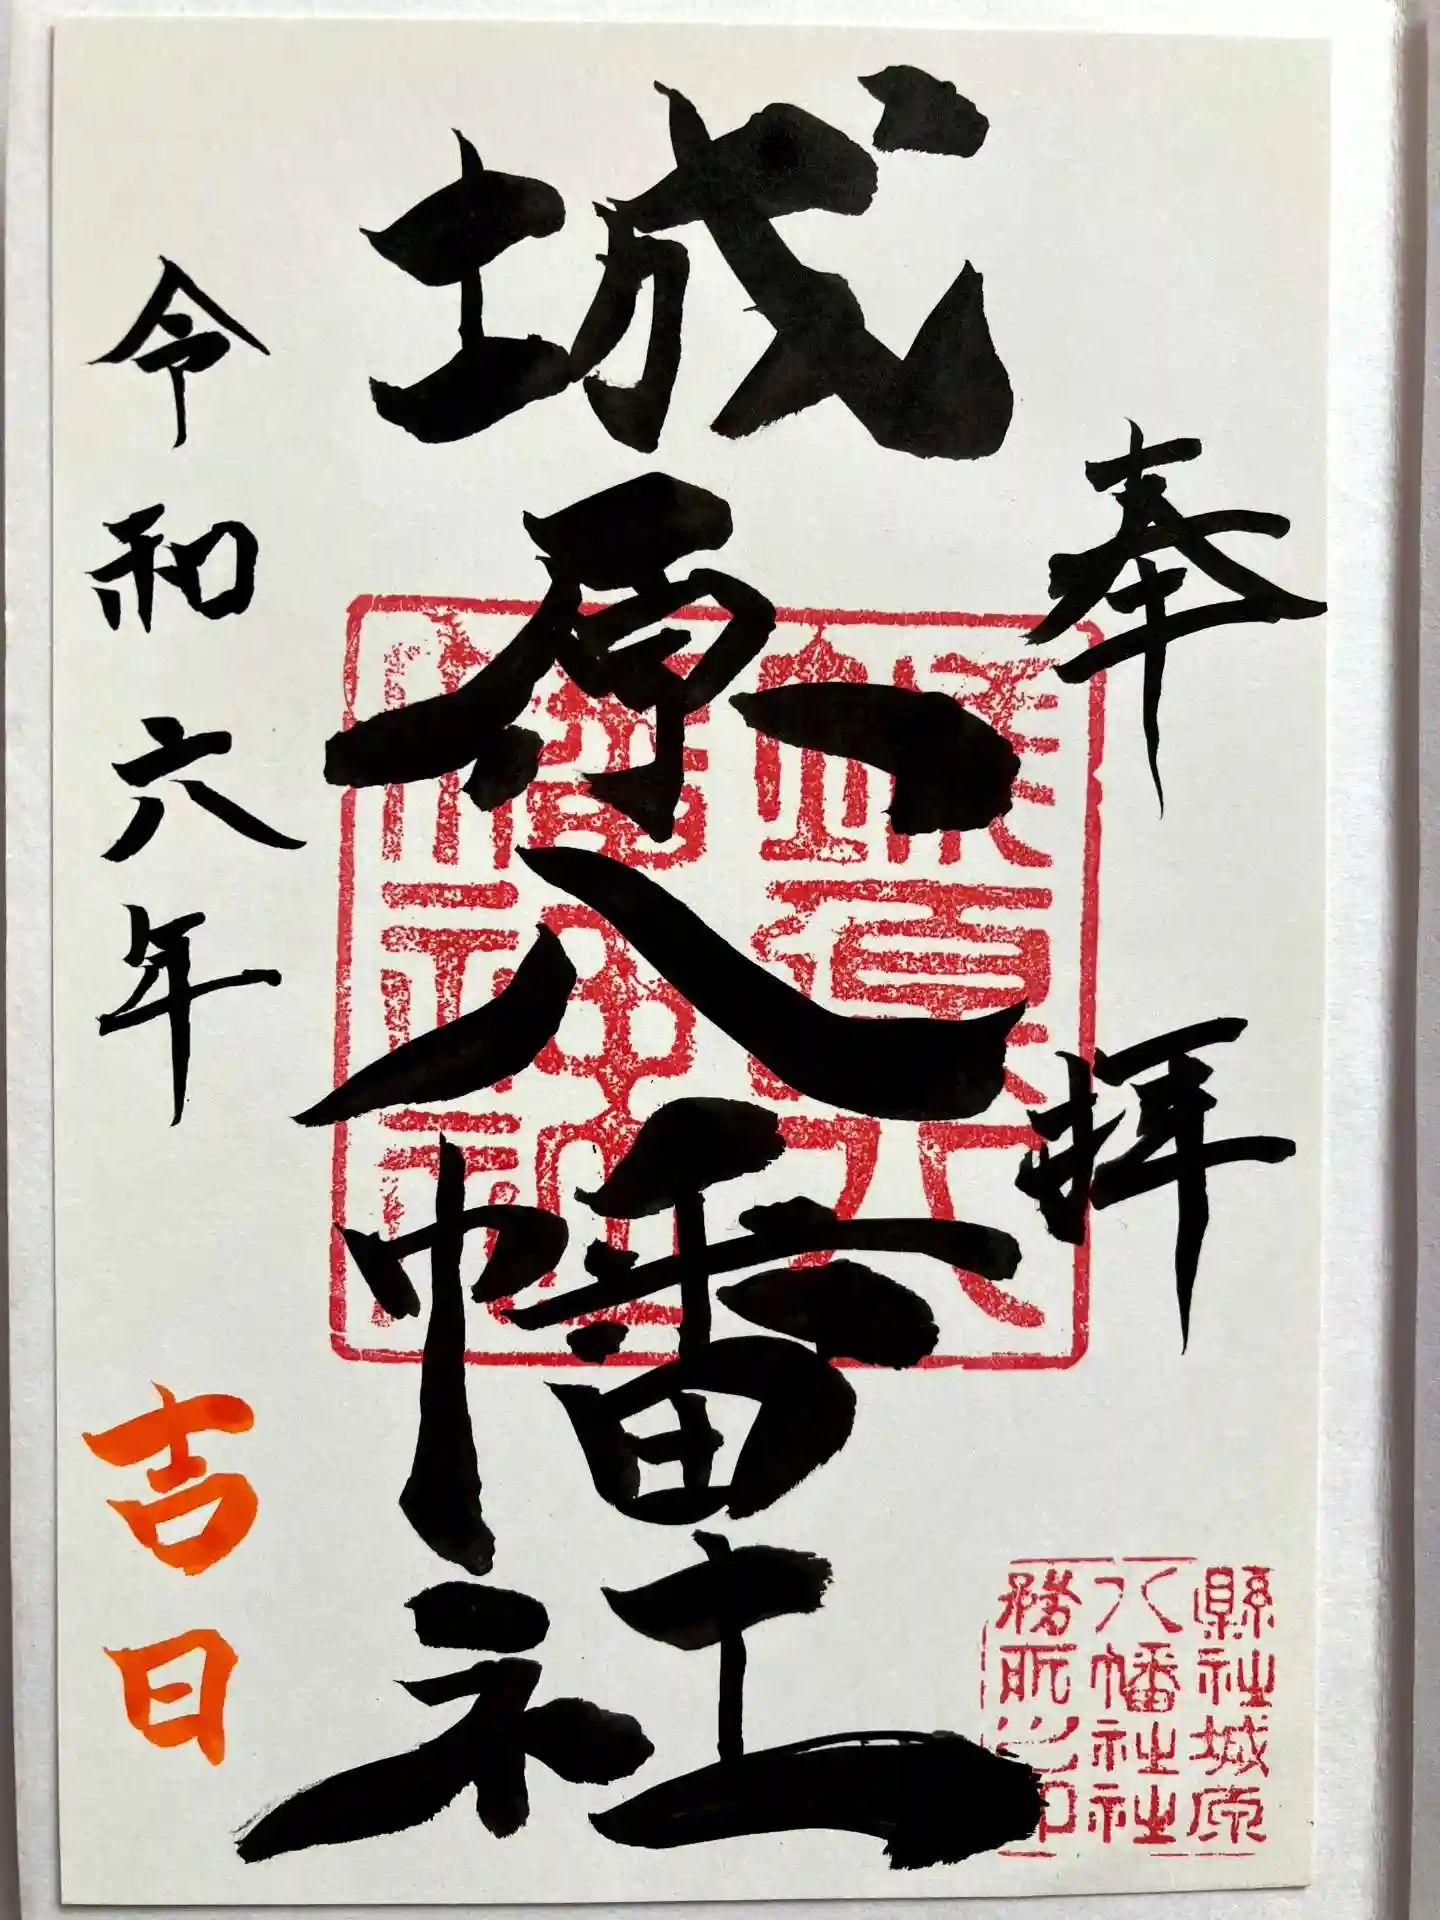 奉拝
城原八幡社
城原八
幡神社
縣社城原
八幡社社
務所之印
令和六年
吉日